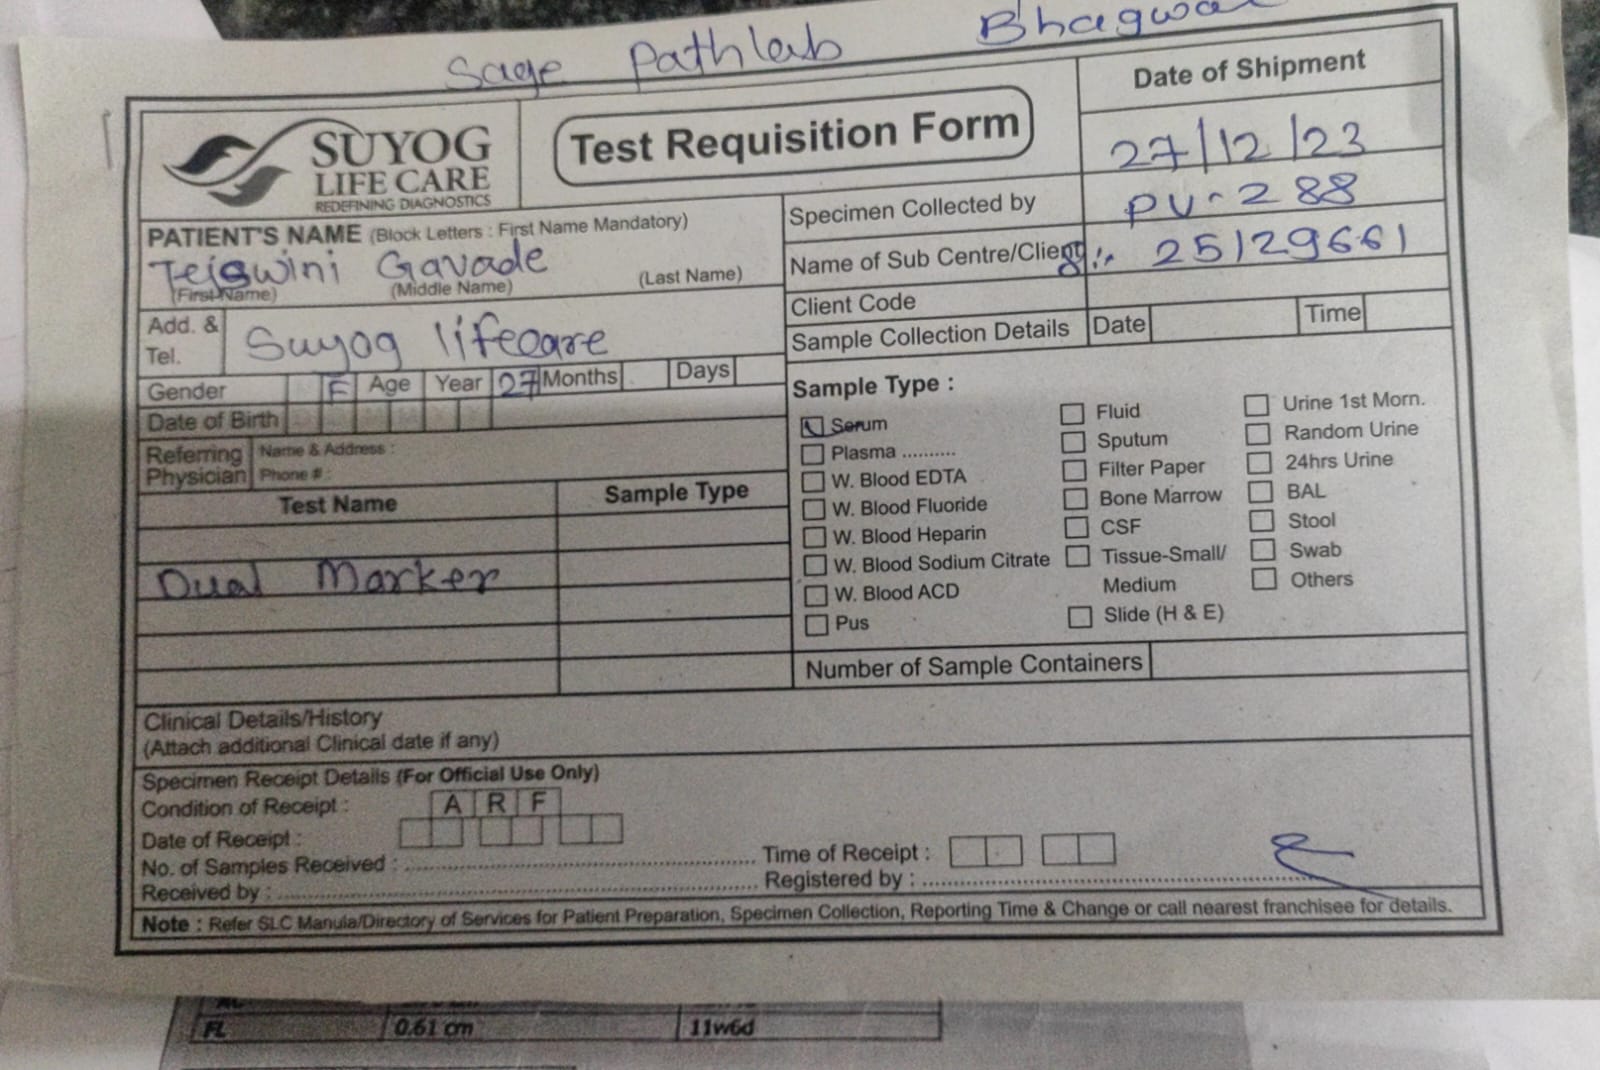 Sage Pathlab
SUYOG
LIFE CARE
REDEFINING DIAGNOSTICS
Test Requisition Form
Date of Shipment
27/12/23
PATIENT'S NAME (Block Letters : First Name Mandatory)
Tejswini Gavade
(First Name) (Middle Name) (Last Name)
Specimen Collected by PU-288
Name of Sub Centre/Client 25129661
Client Code
Sample Collection Details Date Time
Add. &
Tel.
Suyog lifecare
Gender F Age Year 27 Months Days
Date of Birth
Referring
Physician
Name & Address :
Phone # :
Test Name Sample Type
Dual Marker
Sample Type :
Serum
Plasma ..........
W. Blood EDTA
W. Blood Fluoride
W. Blood Heparin
W. Blood Sodium Citrate
W. Blood ACD
Pus
Fluid
Sputum
Filter Paper
Bone Marrow
CSF
Tissue-Small/
Medium
Slide (H & E)
Urine 1st Morn.
Random Urine
24hrs Urine
BAL
Stool
Swab
Others
Number of Sample Containers
Clinical Details/History
(Attach additional Clinical date if any)
Specimen Receipt Details (For Official Use Only)
Condition of Receipt : A R F
Date of Receipt :
Time of Receipt :
No. of Samples Received :
Registered by :
Received by :
Note : Refer SLC Manula/Directory of Services for Patient Preparation, Specimen Collection, Reporting Time & Change or call nearest franchisee for details.
FL 0.61 cm 11w6d